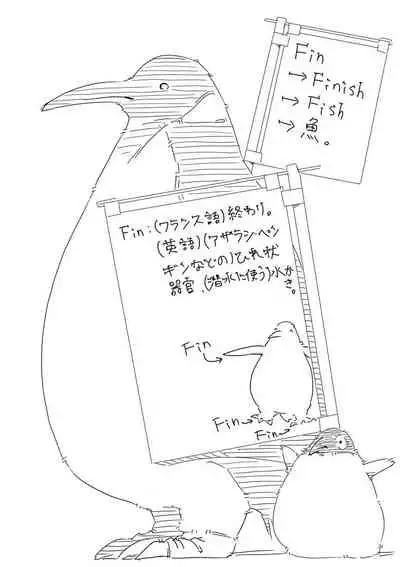 Fin
→Finish
→Fish
→魚。
Fin:(フランス語)終わり。
(英語)(アザラシ・ペン
ギンなどの)ひれ状
器官、(潜水に使う)水かき。
Fin
Fin
Fin